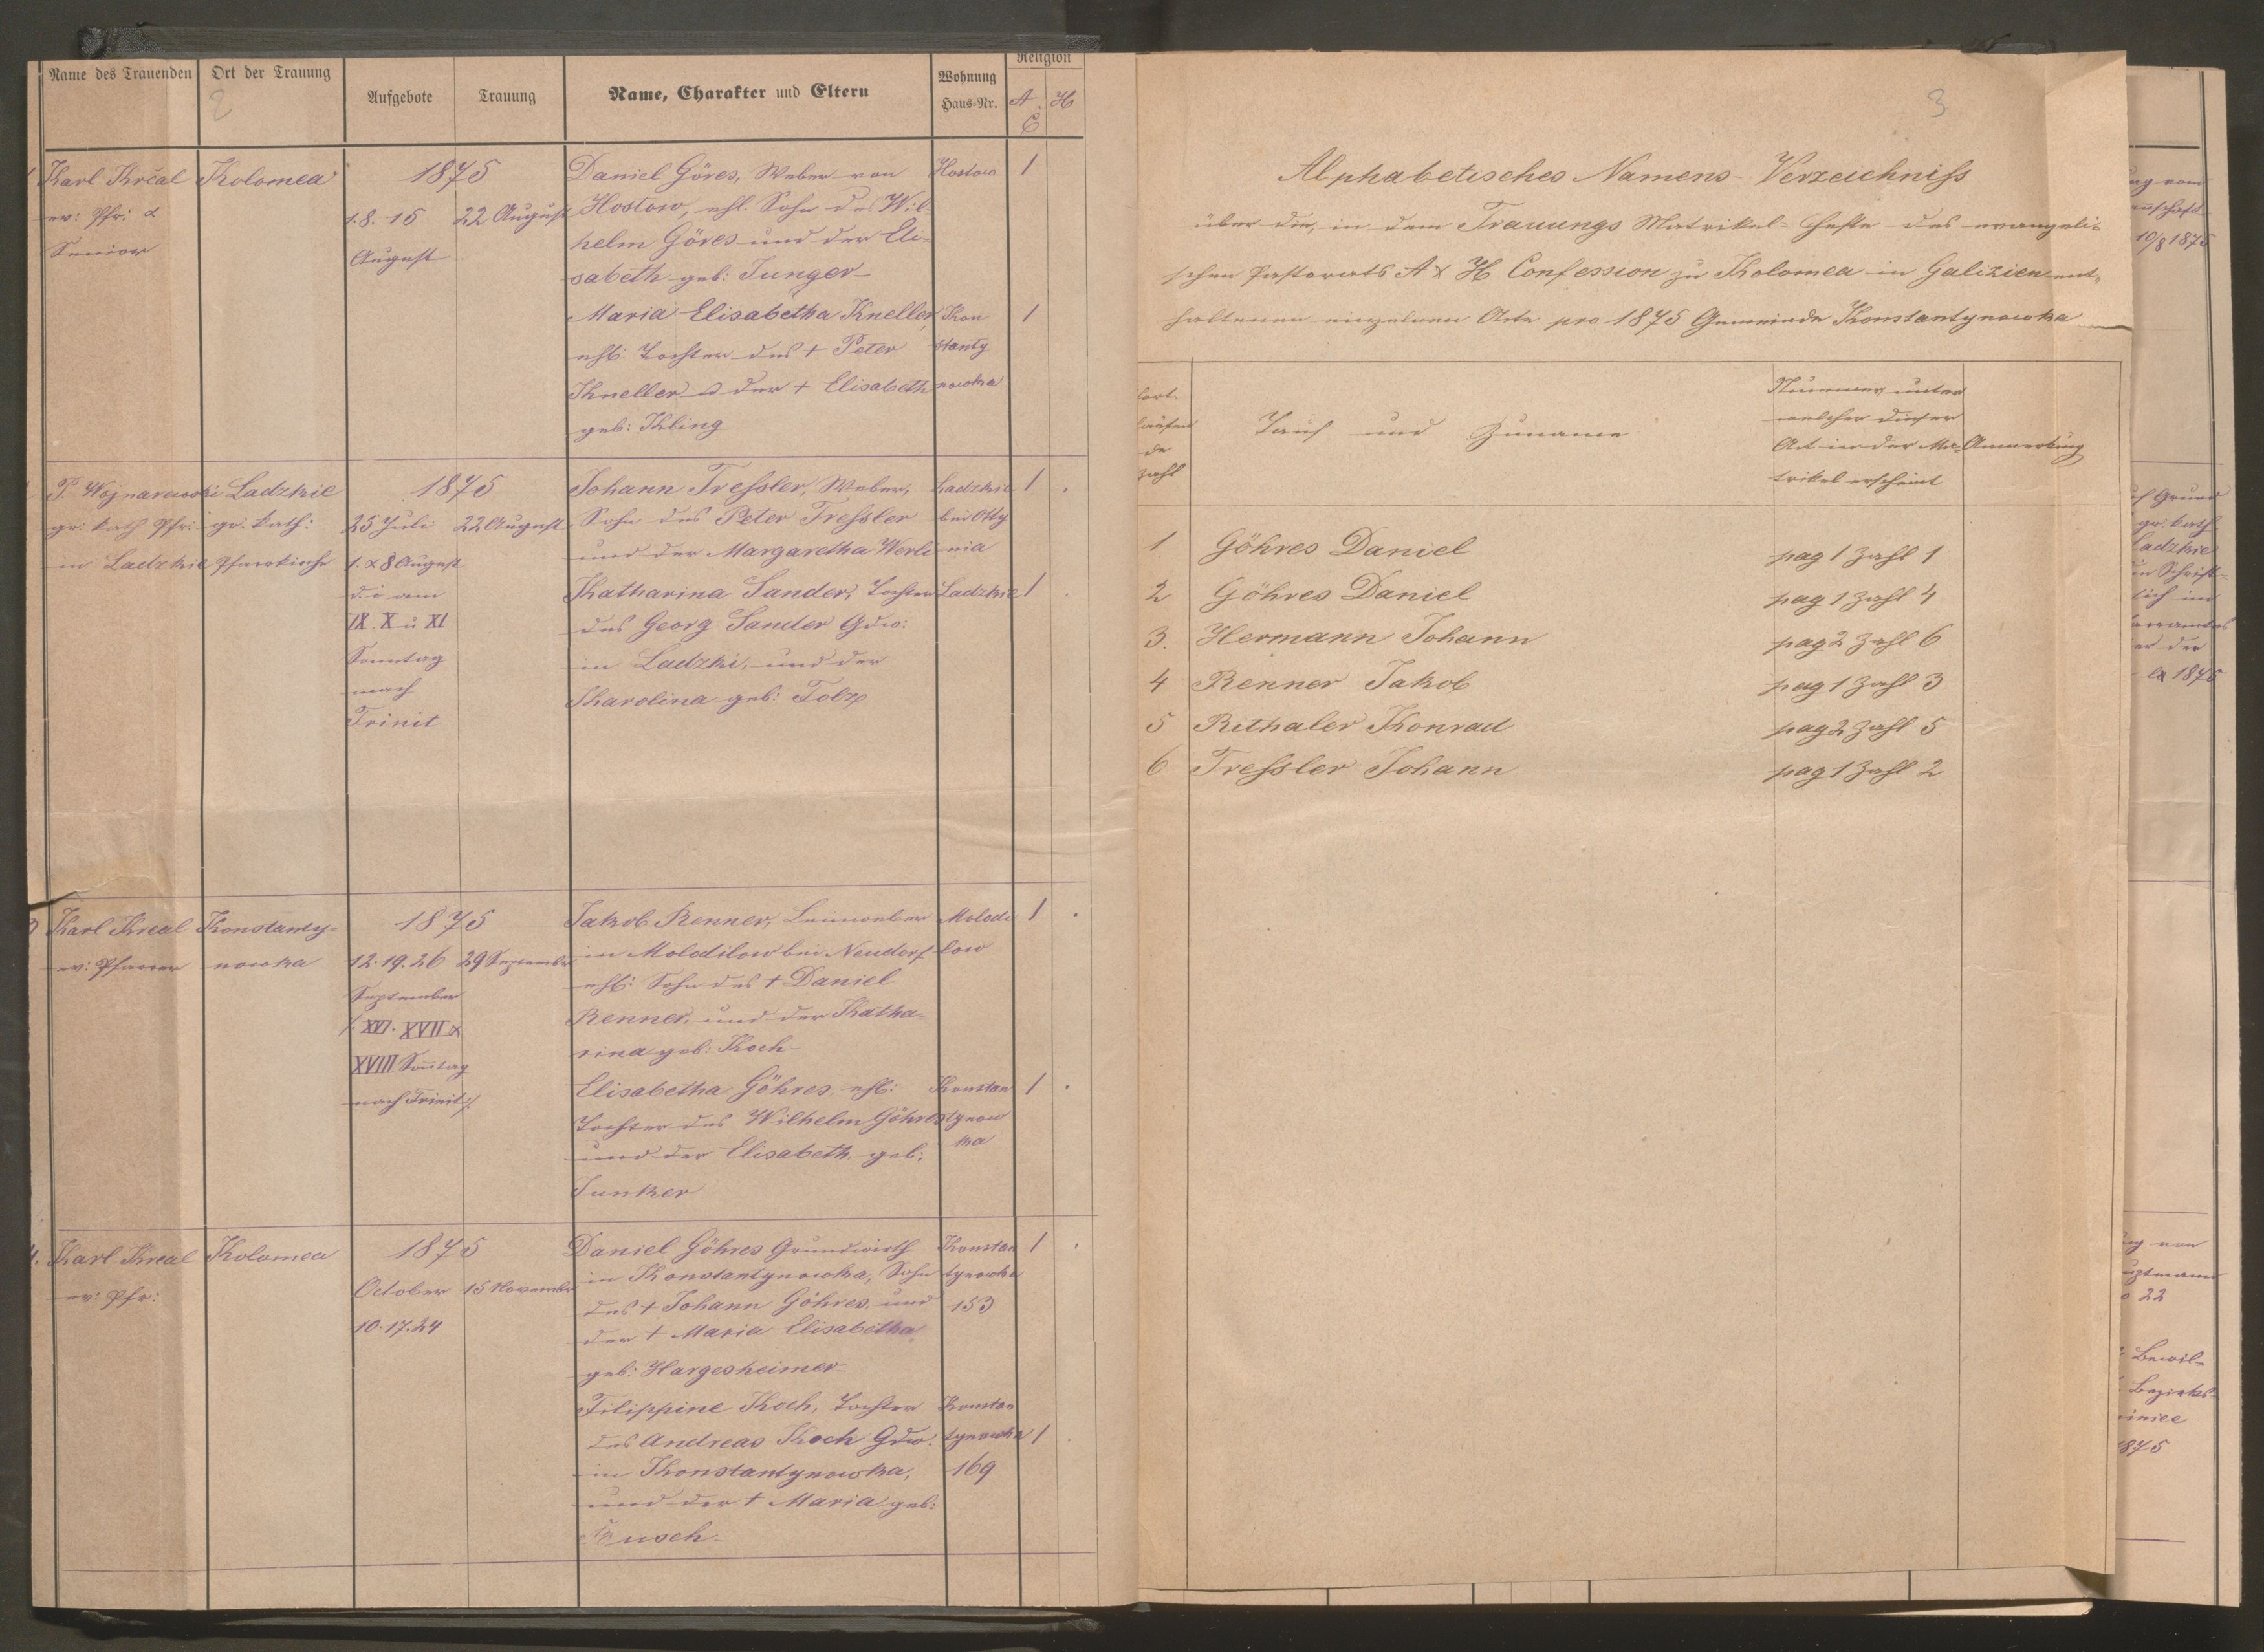 Name des Trauenden
Ort der Trauung
2
Aufgebote
Trauung
Name, Charakter und Eltern
Wohnung
Haus-Nr.
Religion
A
C
H
Karl Krčal
ev: Pfr: &
Senior
Kolomea
1875
1. 8. 15
August
22 August
Daniel Göres, Weber von
Hostow, ehl. Sohn des Wil-
helm Göres und der Eli-
sabeth geb: Junger
Hostow
1
Maria Elisabetha Kneller,
ehl: Tochter des † Peter
Kneller u der † Elisabeth
geb: Kling
Kon
stanty
nowka
1
P. Wojnarowski
gr. kath Pfr:
in Ladzkie
Ladzkie
gr. kath:
Pfarrkirche
1875
25 Juli
1. & 8 August
d. i am
IX. X u XI
Sonntag
nach
Trinit
22 August
Johann Treßler, Weber,
Sohn des Peter Treßler
und der Margaretha Werle
Ladzkie
bei Otty
nia
1
Katharina Sander, Tochter
des Georg Sander Gdw:
in Ladzki, und der
Karolina geb: Tolz
Ladzkie
1
3
Karl Krcal
ev: Pfarrer
Konstanty-
nowka
1875
12. 19. 26
September
/. XVI. XVII &
XVIII Sonntag
nach Trinit /.
29 September
Jakob Renner, Leinweber
in Molodilow bei Neudorf
ehl: Sohn des † Daniel
Renner, und der Katha-
rina geb: Koch
Molodi
low
1
Elisabetha Göhres, ehl:
Tochter des Wilhelm Göhres
und der Elisabeth geb:
Junker
Konstan
tynow
ka
1
4.
Karl Krcal
ev: Pfr:
Kolomea
1875
October
10. 17. 24
15 November
Daniel Göhres Grundwirth
in Konstantynowka, Sohn
des † Johann Göhres, und
der † Maria Elisabetha
geb: Hargesheimer
Konstan
tynowka
153
1
Filippine Koch, Tochter
des Andreas Koch Gdw.
in Konstantynowka,
und der † Maria geb:
Busch
Konstan
tynowka
169
1
3
Alphabetisches Namens-Verzeichniß
über die, in dem Trauungs Matrikel-Hefte des evangeli-
schen Pastorats A & H Confession zu Kolomea in Galizien ent-
haltenen einzelnen Acte pro 1875 Gemeinde Konstantynowka
Fort-
laufen
de
Zahl
Tauf und Zuname
Nummer unter
welcher dieser
Act in der Ma-
trikel erscheint
Anmerkung
1 Göhres Daniel pag 1 Zahl 1
2 Göhres Daniel pag 1 Zahl 4
3. Hermann Johann pag 2 Zahl 6
4 Renner Jakob pag 1 Zahl 3
5 Rithaler Konrad pag 2 Zahl 5
6 Treßler Johann pag 1 Zahl 2
10/8 1875
Grund
gr. kath
Ladzkie
1875
22
Bewil-
Bezirks-
1875